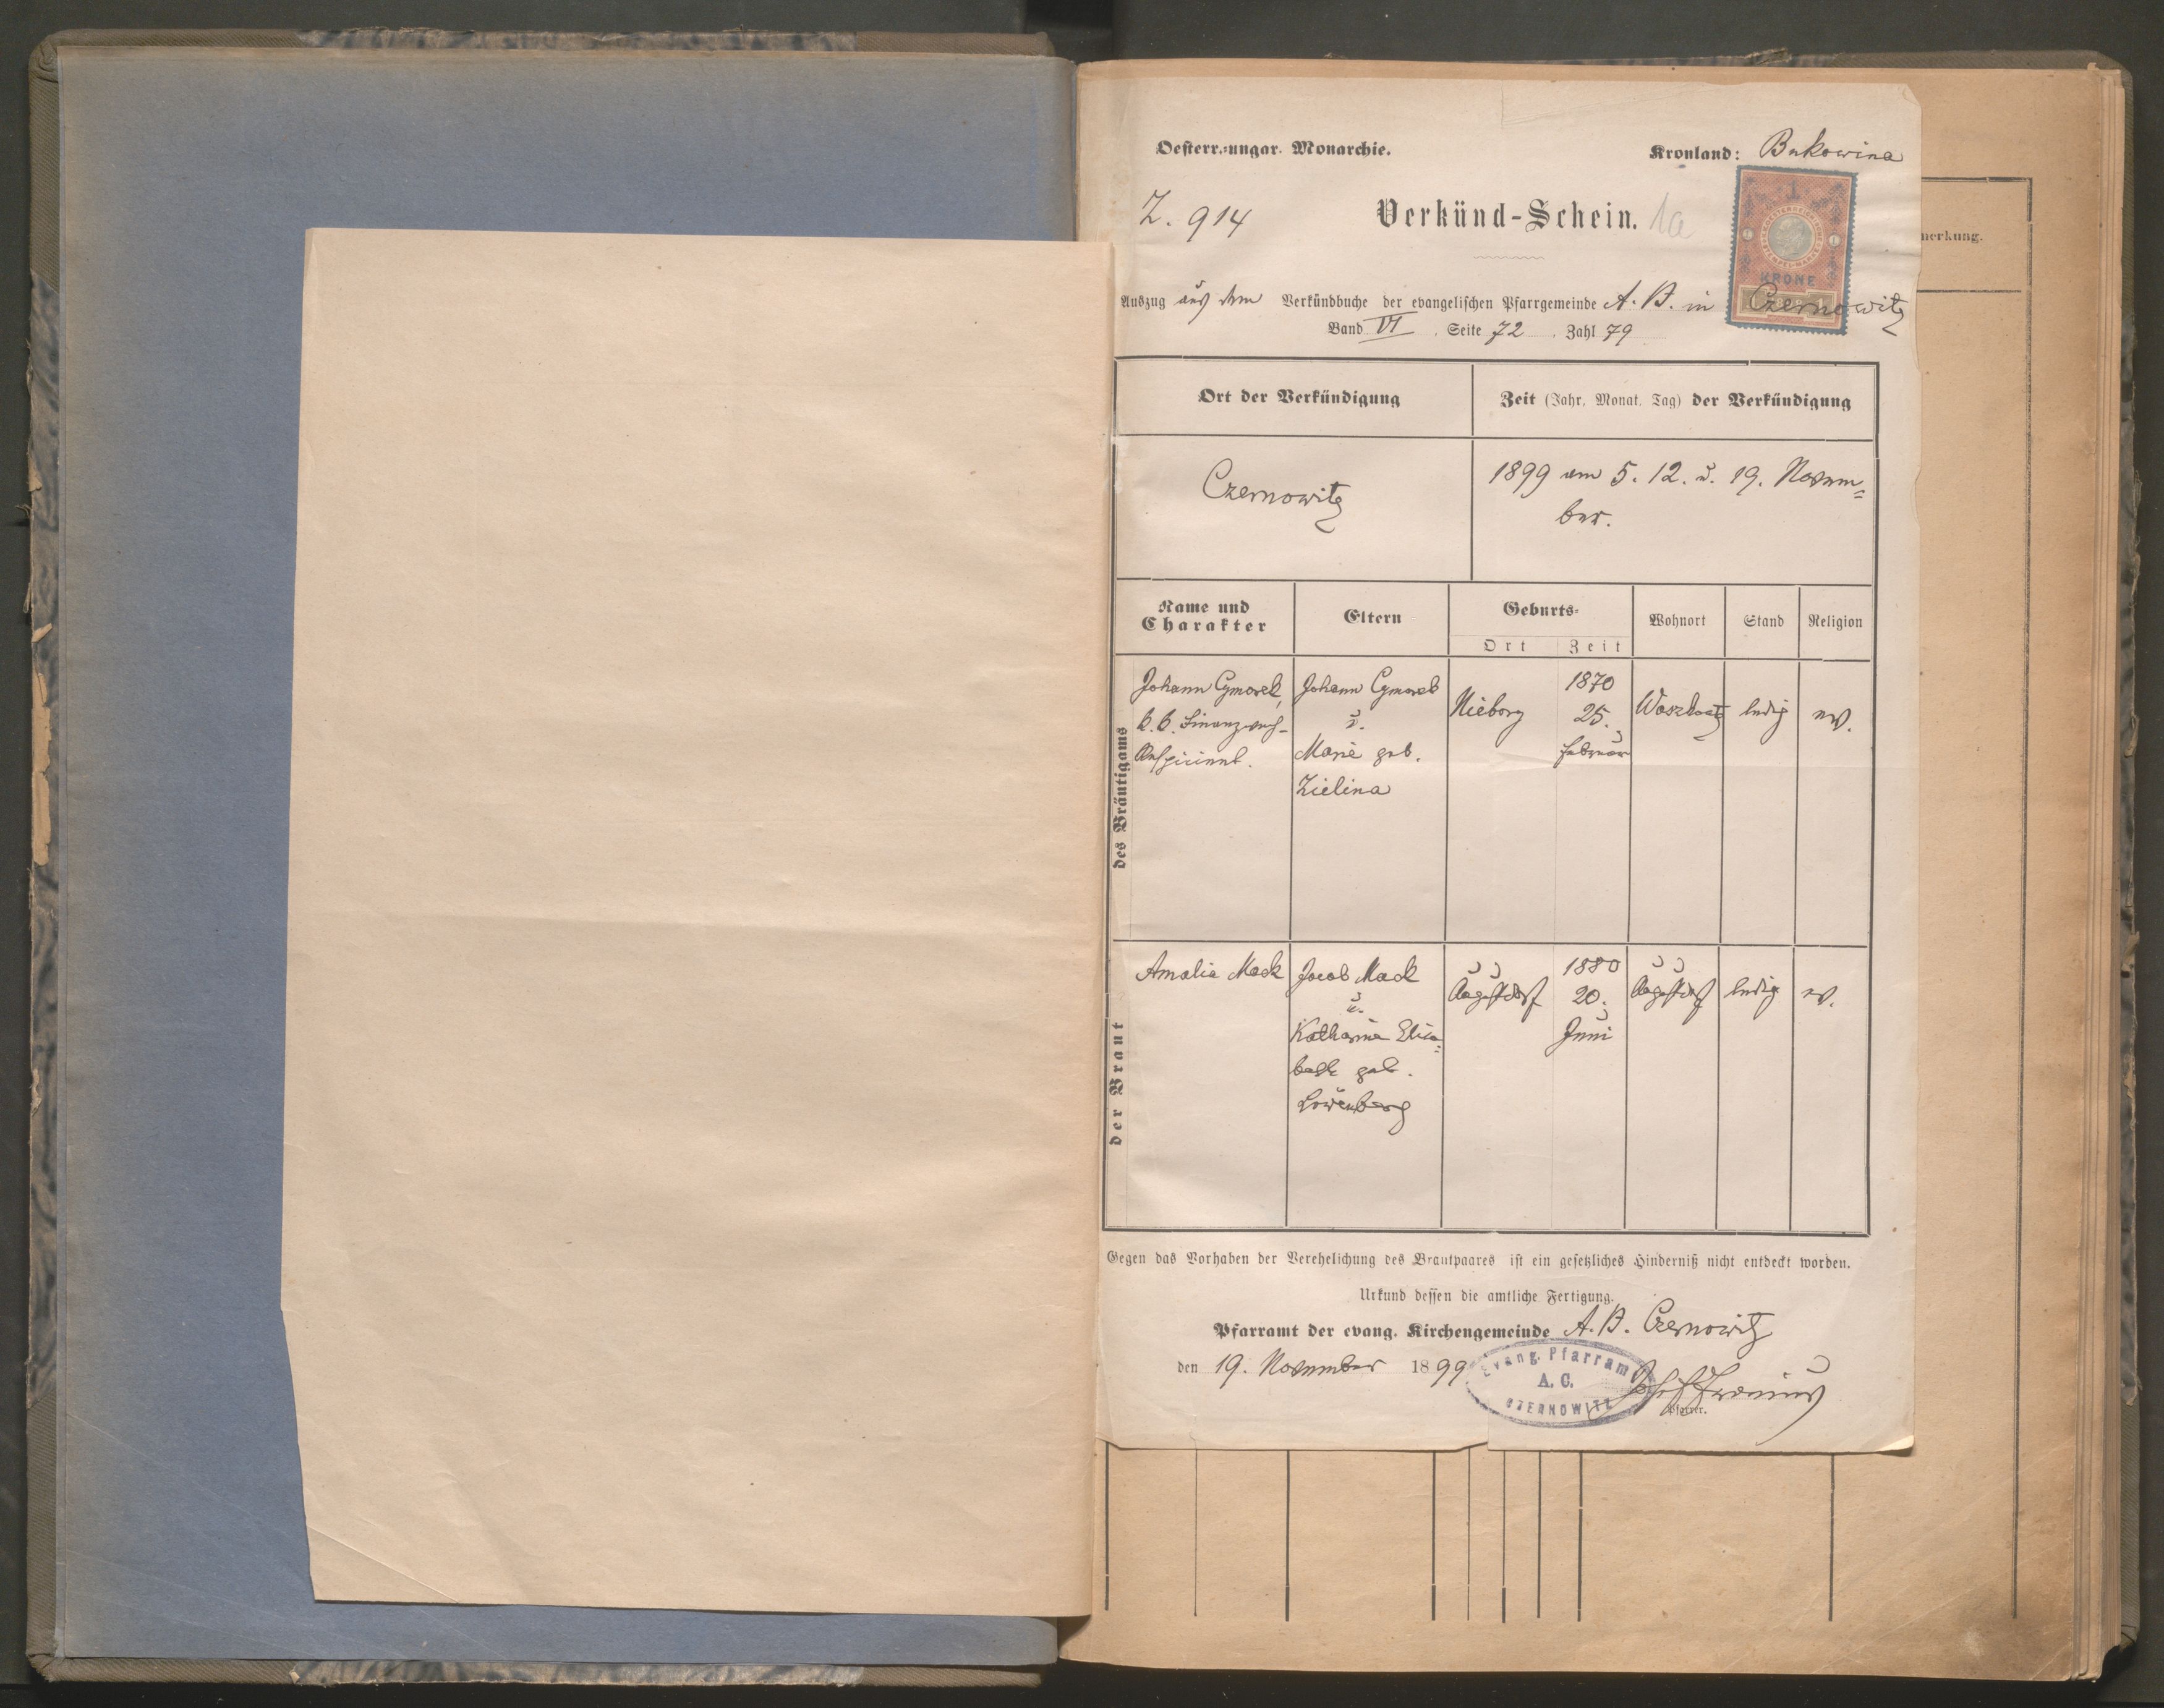 Oesterr.-ungar. Monarchie.
Kronland: Bukowina
Z. 914
Verkünd-Schein. 1a
1
KRONE
Auszug aus dem Verkündbuche der evangelischen Pfarrgemeinde A. B. in Czernowitz
Band VI. Seite 72. Zahl 79
merkung.
Ort der Verkündigung
Zeit (Jahr, Monat, Tag) der Verkündigung
Czernowitz
1899 am 5. 12. u. 19. Novem=
ber.
Name und
Charakter
Eltern
Geburts-
Ort
Zeit
Wohnort
Stand
Religion
des Bräutigams
Johann Cymorek,
k. k. Finanzwach-
Aufseher.
Johann Cymorek
u.
Marie geb.
Zielina
Nieborg
1870
25.
Februar
ledig
ev.
der Braut
Amalia Mack
Jacob Mack
u.
Katharina Elisa=
beth geb.
Löwenberg
Augustdorf
1880
20.
Juni
Augustdorf
ledig
ev.
Gegen das Vorhaben der Verehelichung des Brautpaares ist ein gesetzliches Hinderniß nicht entdeckt worden.
Urkund dessen die amtliche Fertigung.
Pfarramt der evang. Kirchengemeinde A. B. Czernowitz
den 19. November 1899
Evang. Pfarramt
A. C.
CZERNOWITZ
Josef Fronius
Pfarrer.